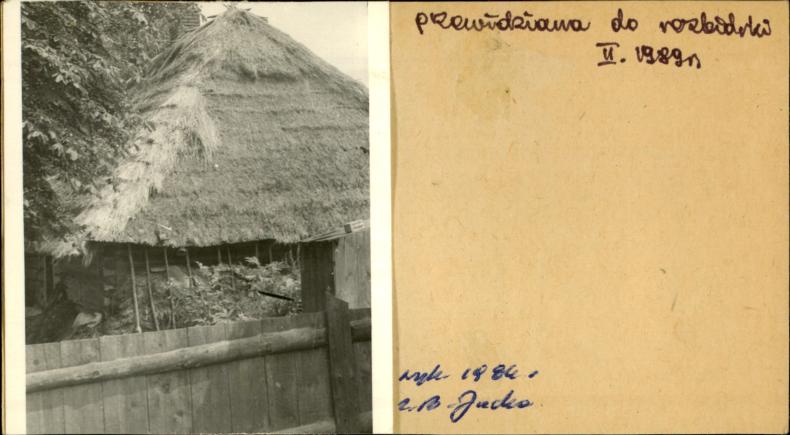 przewidziana do rozbiórki
II. 1989 r.
wyk. 1984 r.
B. Jucha